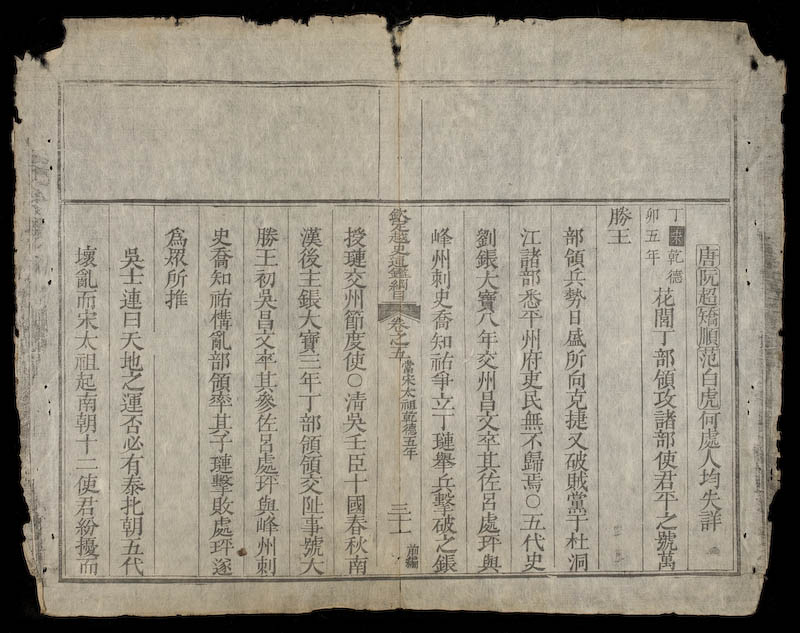 唐阮超矯順范白虎何處人均失詳
丁宋乾德
卯五年
花閭丁部領攻諸部使君平之號萬
勝王
部領兵勢日盛所向克捷又破賊黨于杜洞
江諸部悉平州府吏民無不歸焉○五代史
劉鋹大寶八年交州昌文卒其佐呂處坪與
峰州刺史喬知祐爭立丁璉舉兵擊破之鋹
欽定越史通鑑綱目
卷之五
當宋太祖乾德五年
三十
前編
授璉交州節度使○清吳壬臣十國春秋南
漢後主鋹大寶三年丁部領領交阯事號大
勝王初吳昌文卒其參佐呂處坪與峰州刺
史喬知祐構亂部領率其子璉擊敗處坪遂
為眾所推
吳士連曰天地之運否必有泰北朝五代
壞亂而宋太祖起南朝十二使君紛擾而